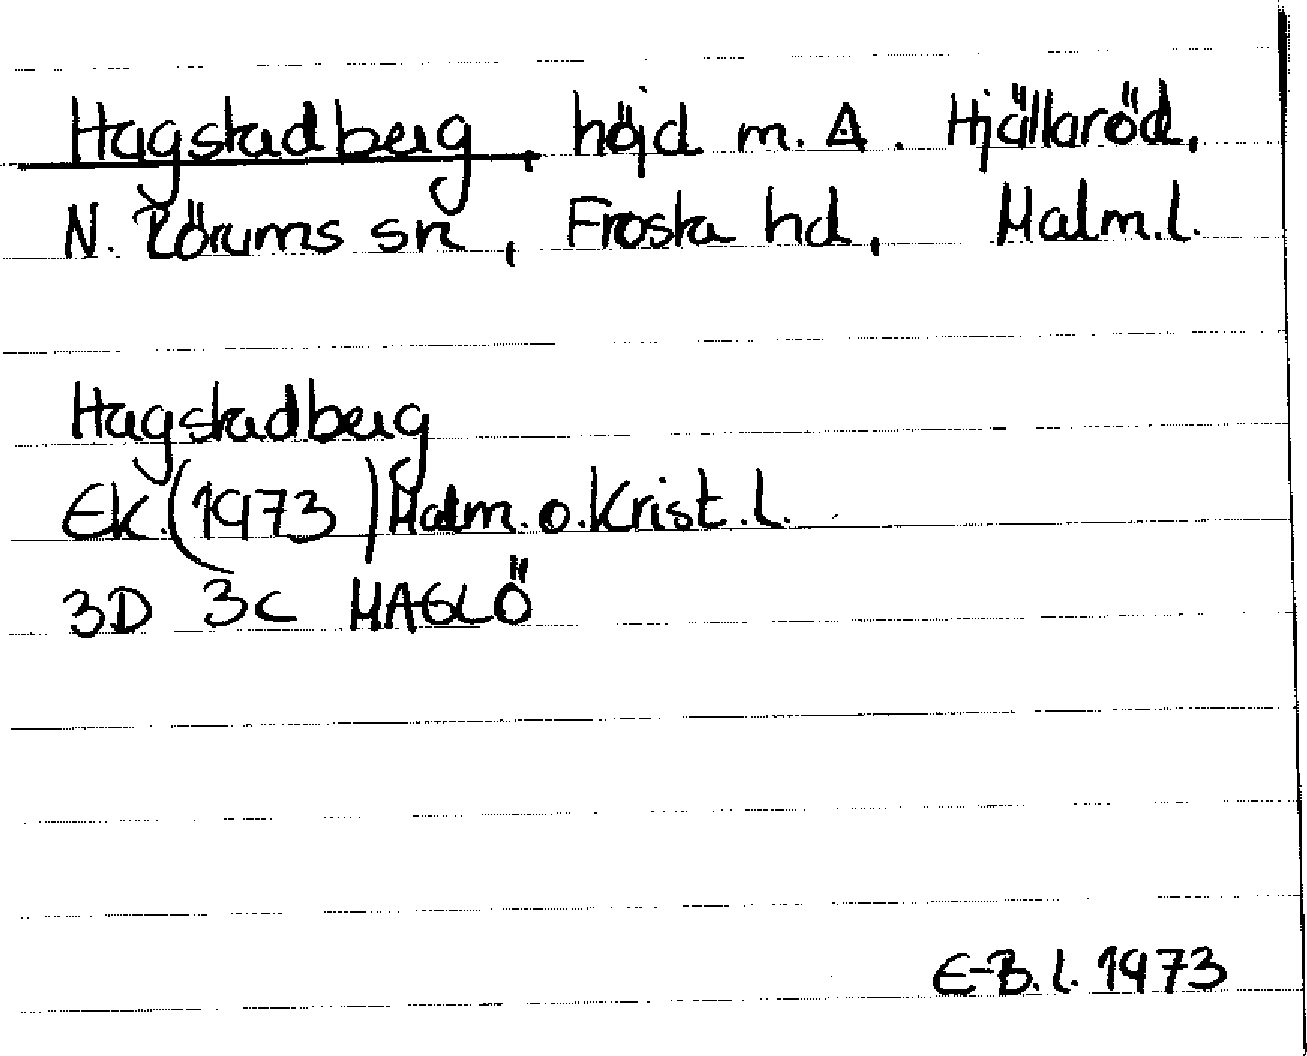 Hagstadberg, höjd m. Δ. Hjällaröd,
N. Rörums sn, Frosta hd, Malm.l.
Hagstadberg
Ek.(1973) Malm.o.Krist.l.
3D 3c MAGLÖ
E-B.l. 1973